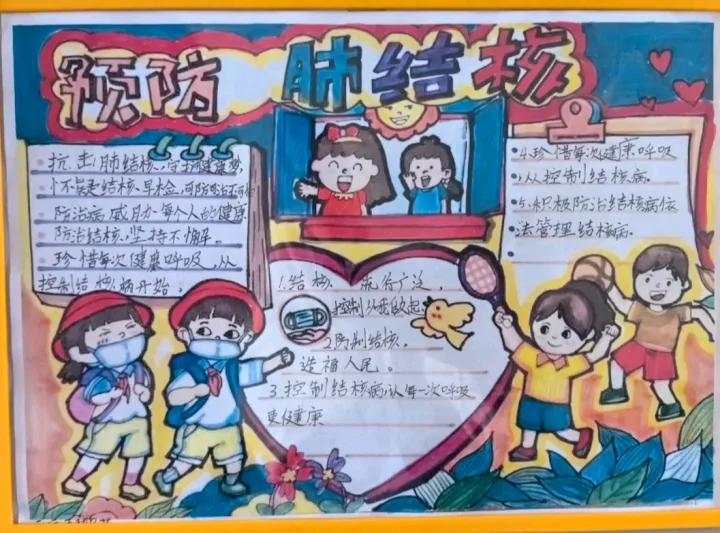 预防 肺结核
抗击肺结核,守护健康梦
怀疑结核、早检,可防可治不可怕
防治病 威胁 每个人的健康
防治结核、坚持不懈。
珍惜每次健康呼吸、从
控制结核病开始。
1.结核、流行广泛,
控制从我做起。
2.防制结核。
造福人民。
3.控制结核病,让每一次呼吸
更健康
4.珍惜每次健康呼吸
从控制结核病。
5.积极防治结核病依
法管理结核病。